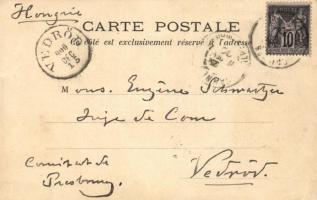 Hongrie
CARTE POSTALE
Ce côté est exclusivement réservé à l'adresse
VEDRŐD
10
Mons. Eugène Schwartzer
Juge de Com
Vedrőd.
Comitat de
Presbourg.